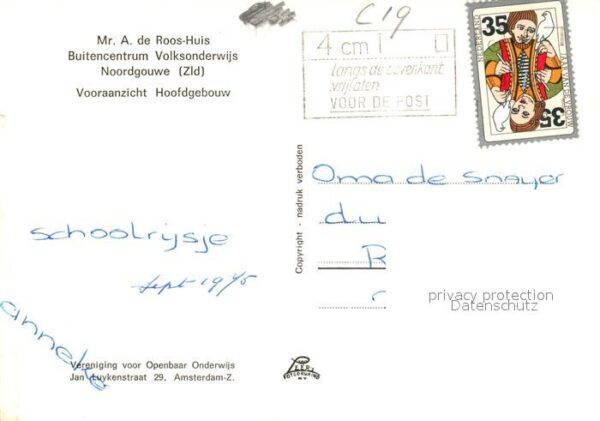 Mr. A. de Roos-Huis
Buitencentrum Volksonderwijs
Noordgouwe (Zld)
Vooraanzicht Hoofdgebouw
C19
4 cm
langs de bovenkant
vrijlaten
VOOR DE POST
35
NEDERLAND
35
Copyright - nadruk verboden
Oma de Snayer
du
R
r
schoolrijsje
sept 1975
anneke
privacy protection
Datenschutz
Vereniging voor Openbaar Onderwijs
Jan Luykenstraat 29, Amsterdam-Z.